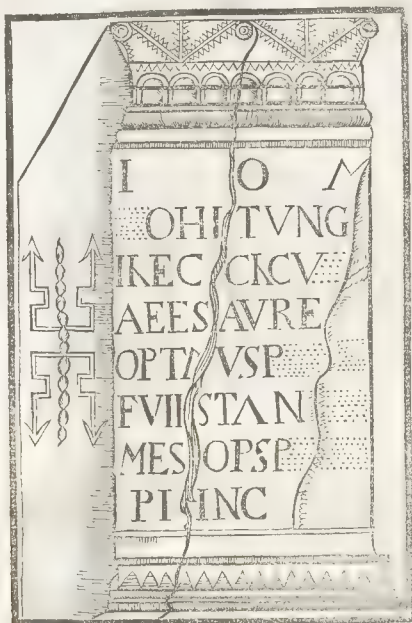 I O M
OHI TVNG
IKEC CKCV
AEES AVRE
OPTΛ VSP
FVII STΛN
MES OPSP
PI INC